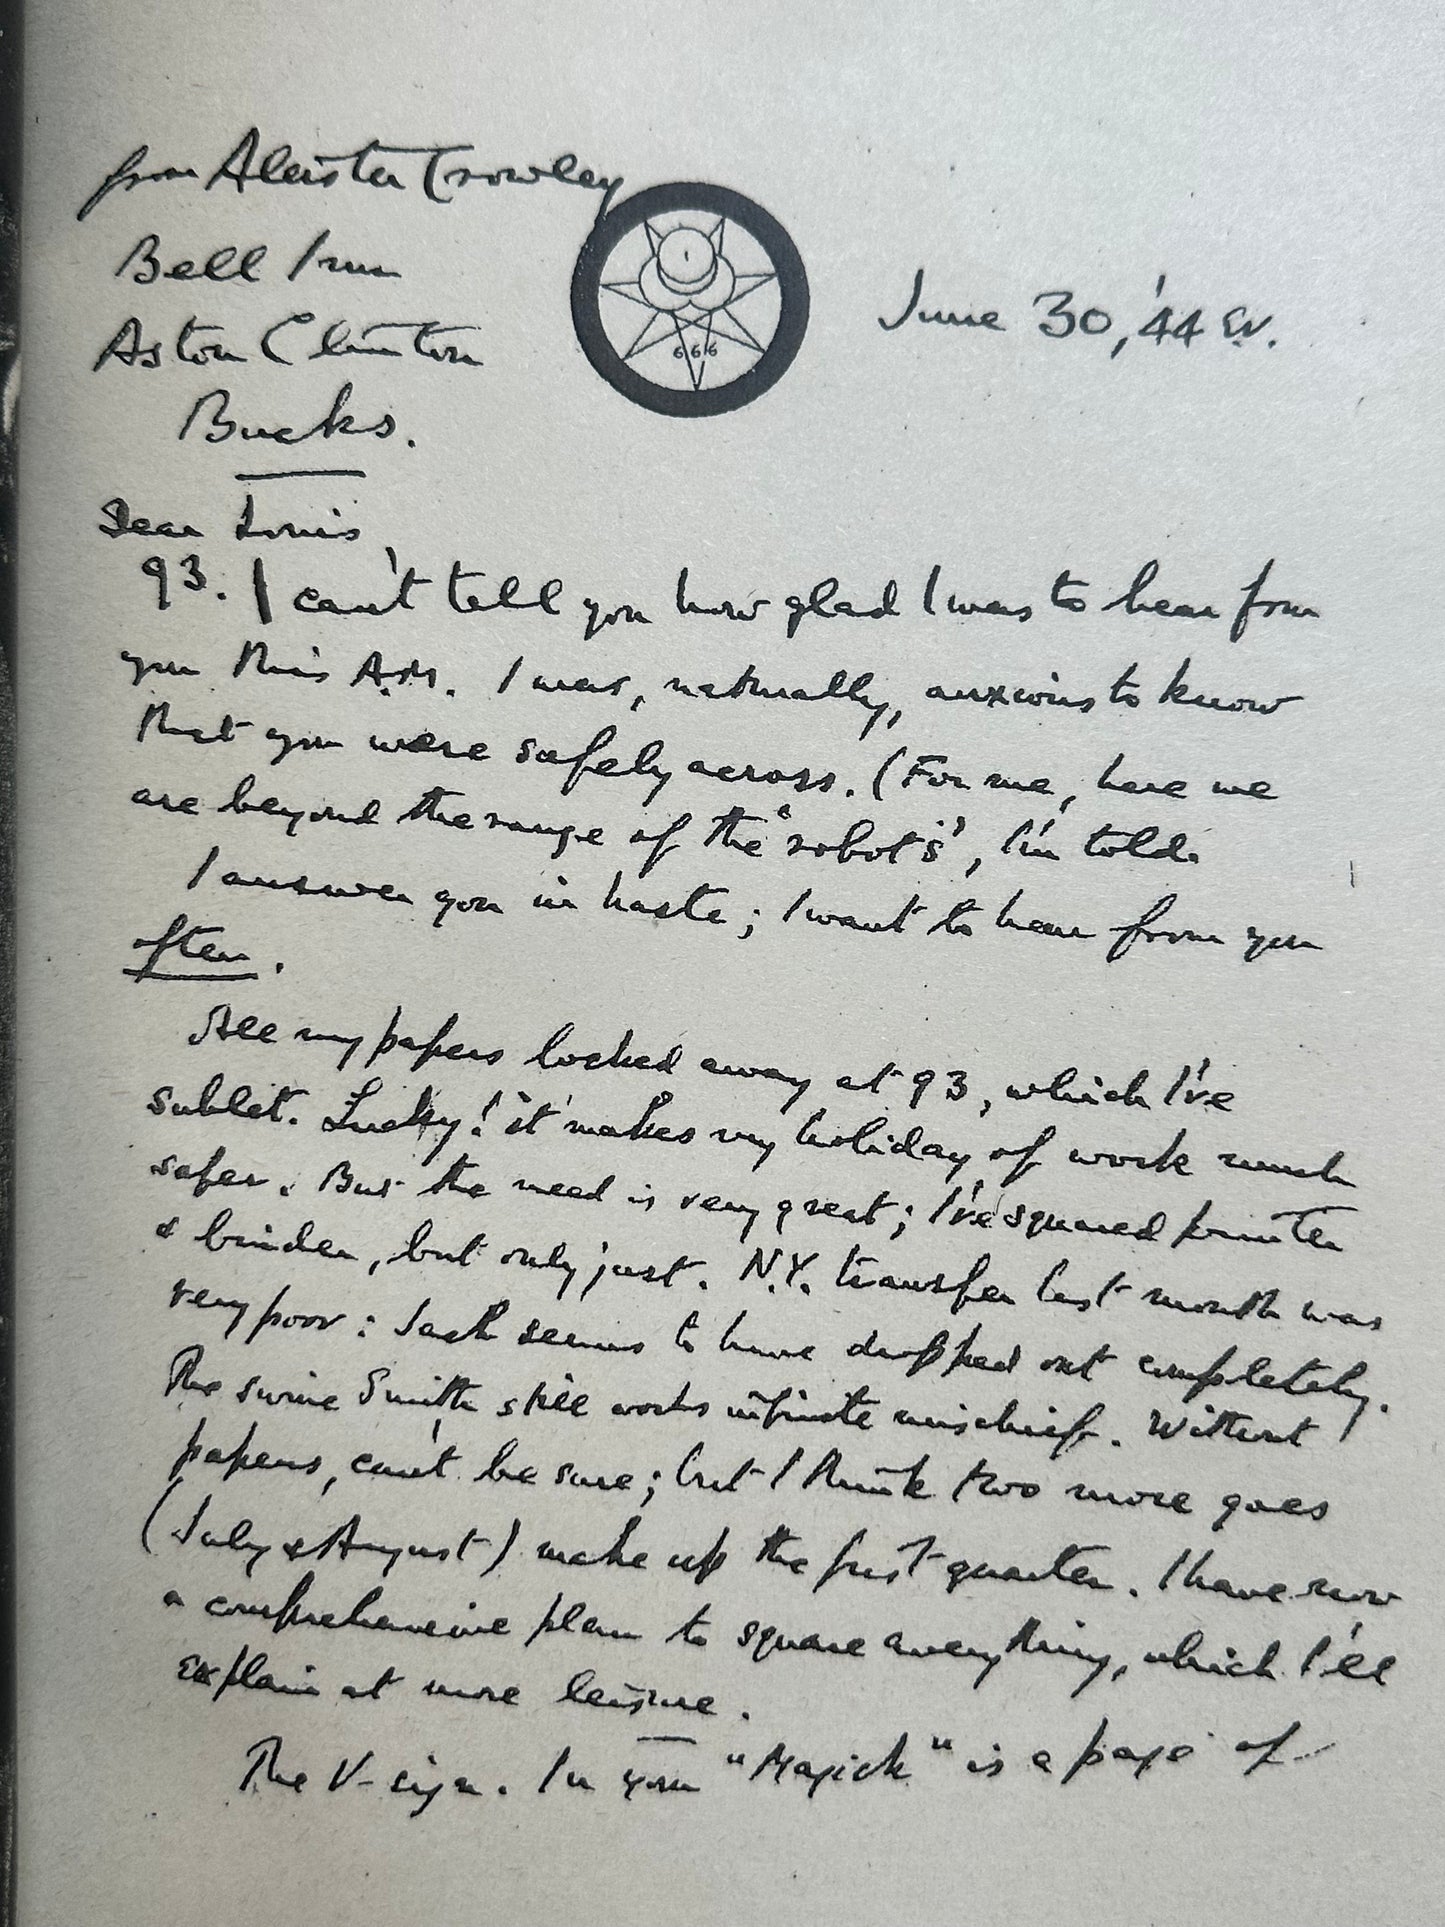 from Aleister Crowley
Bell Inn
Aston Clinton
Bucks.
June 30, '44 E.V.
666
Dear Louis
93. I can't tell you how glad I was to hear from
you this A.M. I was, naturally, anxious to know
that you were safely across. (For me, here we
are beyond the range of the "robots", I'm told.
I answer you in haste; I want to hear from you
often.
All my papers locked away at 93, which I've
sublet. Lucky! it makes my holiday of work much
safer. But the need is very great; I've squared printer
& binder, but only just. N.Y. transfer last month was
very poor: Jack seems to have dropped out completely.
The swine Smith still works infinite mischief. Without
papers, can't be sure; but I think two more goes
(July & August) make up the first quarter. I have now
a comprehensive plan to square everything, which I'll
explain at more leisure.
The V-sign. In your "Magick" is a page of